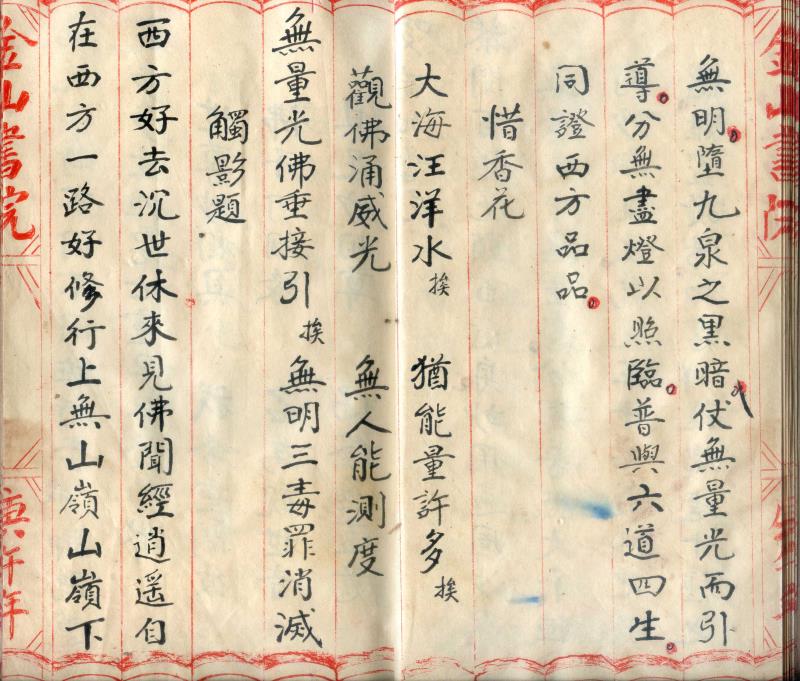 金山書院
無明墮九泉之黑暗仗無量光而引
導分無盡燈以照臨普與六道四生
同證西方品品
惜香花
大海汪洋水挨 猶能量許多挨
觀佛涌威光 無人能測度
無量光佛垂接引挨 無明三毒罪消滅
觸影題
西方好去沉世休來見佛聞經逍遥自
在西方一路好修行上無山嶺山嶺下
金山書院
庚午年